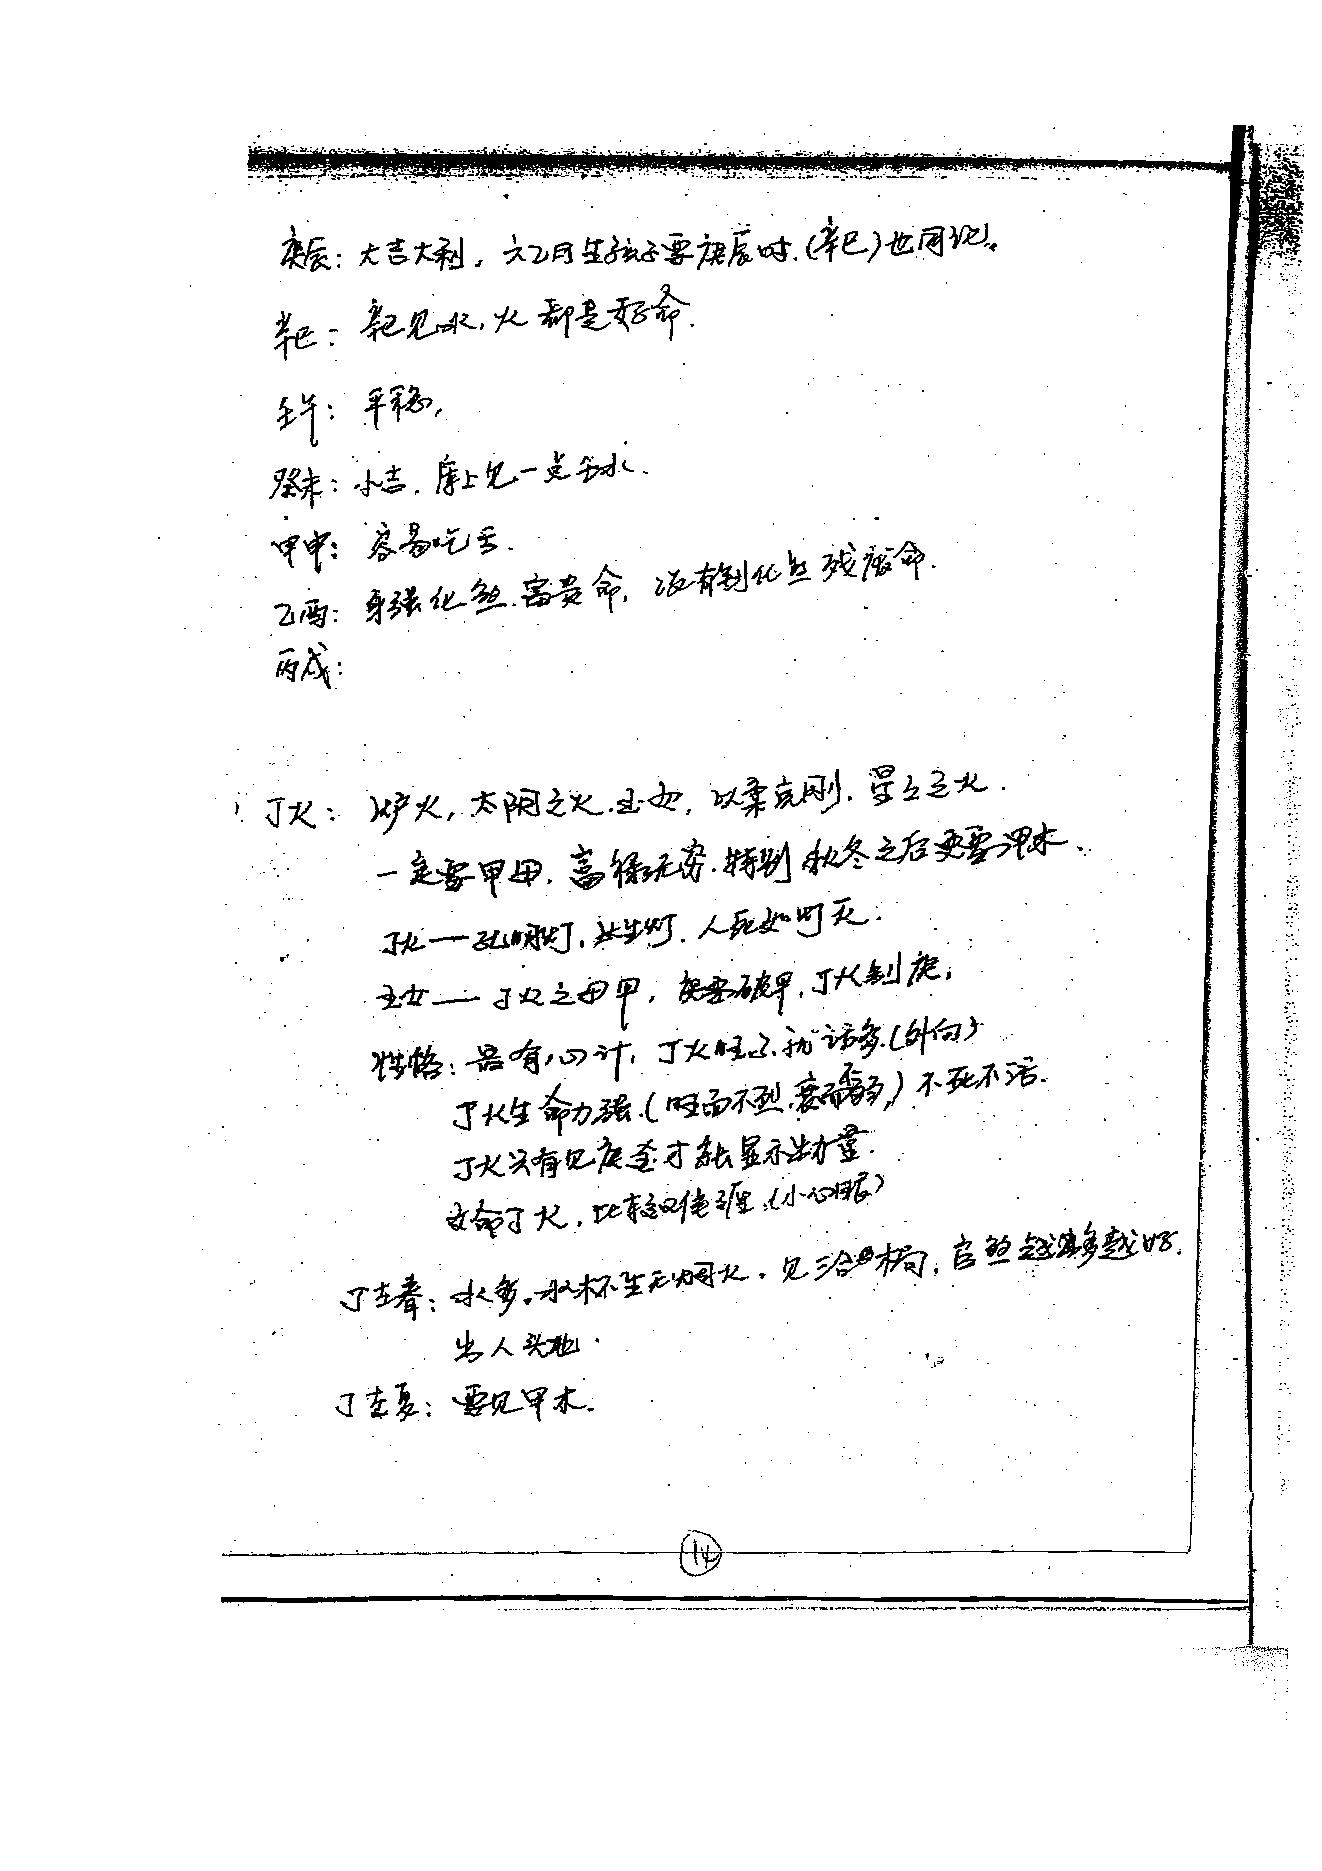 庚辰：大吉大利，六乙日生孩子要庚辰时.(辛巳)也同论。
辛巳：辛巳见水,火都是好命.
壬午：平稳,
癸未：小吉.库上见一点壬水.
甲申：容易吃亏.
乙酉：身强化煞.富贵命,没有制化是残废命.
丙戌：
丁火：炉火,太阴之火.玉女,以柔克刚.星点之火.
一定要甲母,富禄无穷.特别秋冬之后更要甲木.
丁火——孔明灯,长生灯.人死如灯灭.
玉女——丁火之母甲,庚密破甲,丁火制庚,
性格：最有心计,丁火旺了,就话多.(外向)
丁火生命力强.(旺而不烈.衰而不弱)不死不活.
丁火只有见庚金才能显示出力量.
女命丁火,比较 .(小心眼)
丁在春：水多.水木不生无焰火.见三合木局,官煞越多越好.
出人头地.
丁在夏：要见甲木.
14